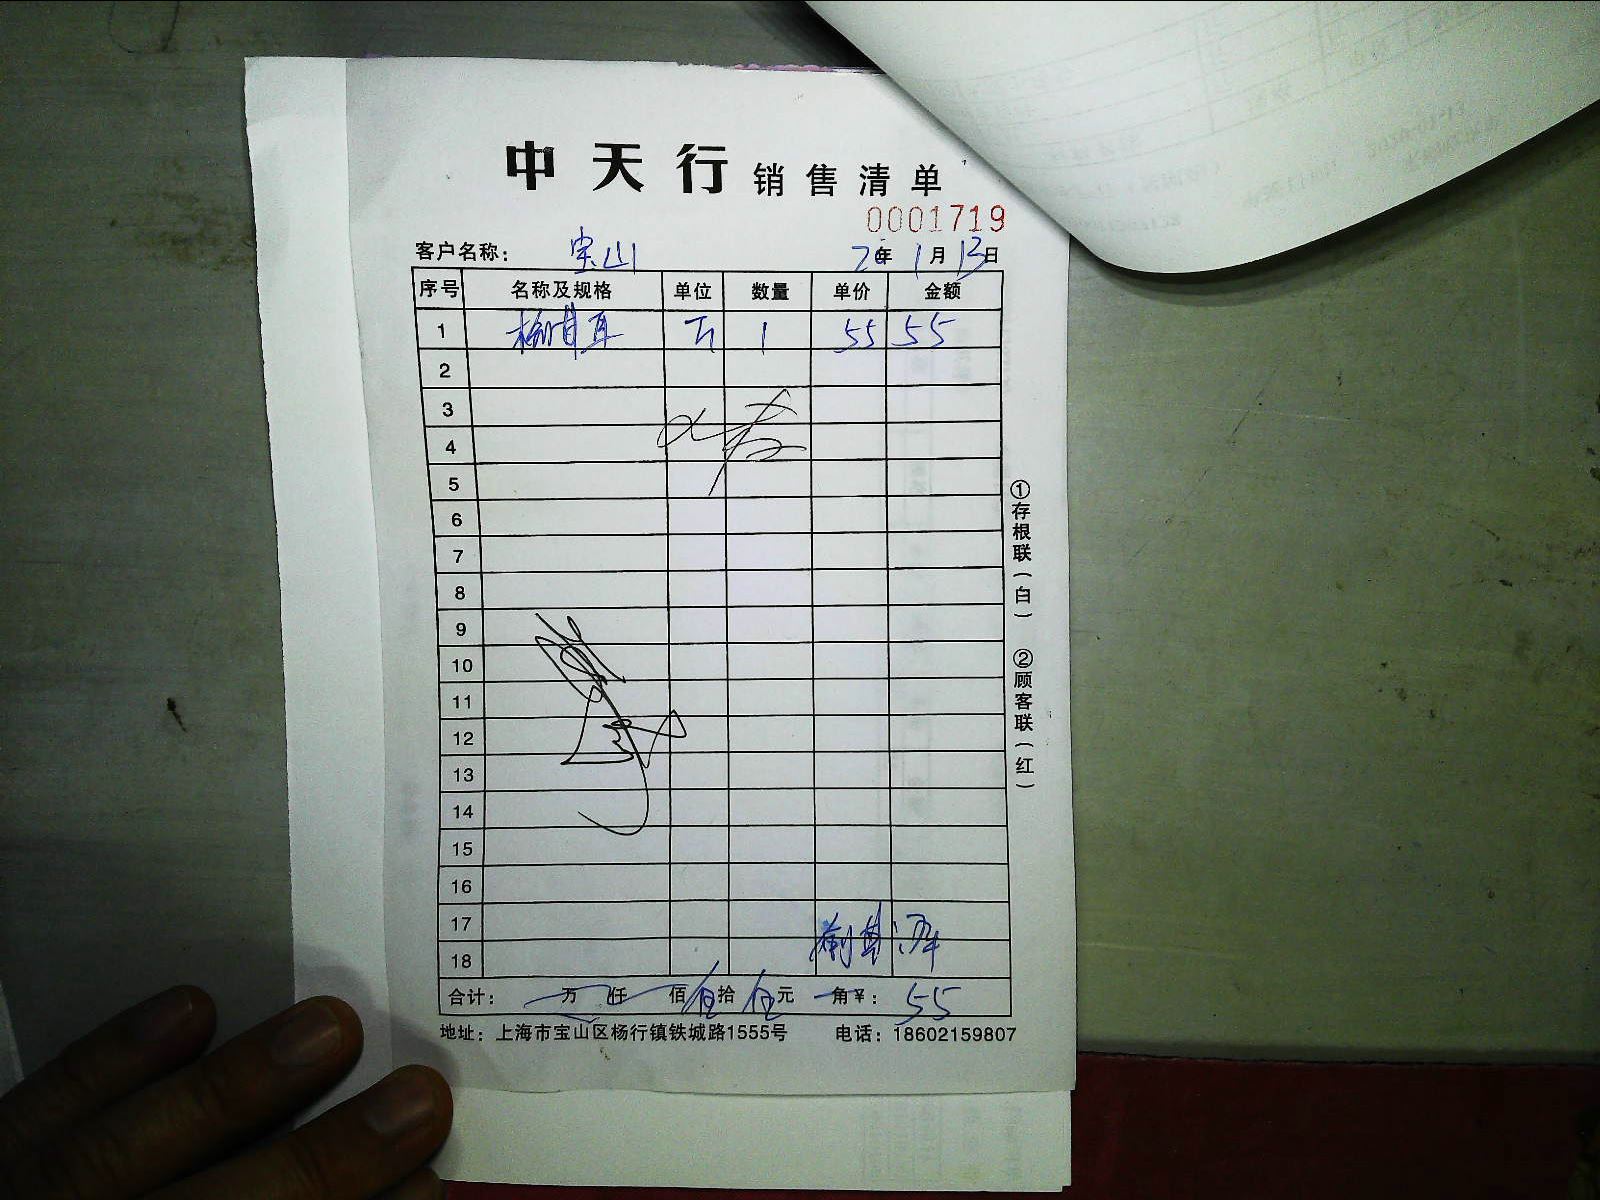 中天行 销售清单
0001719
客户名称： 宝山 20年 1月 13日
序号 名称及规格 单位 数量 单价 金额
1 1 55 55
2
3
4
5
6
7
8
9
10
11
12
13
14
15
16
17
18
合计： 万 仟 佰 伍拾 伍元 角 ¥： 55
地址：上海市宝山区杨行镇铁城路1555号 电话：18602159807
①存根联（白）
②顾客联（红）